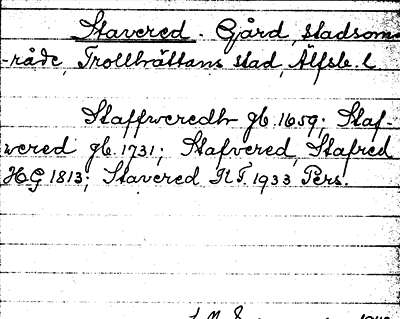 Stavered. Gård, stadsom-
råde, Trollhättans stad, Älfsb. l
Staffweredh gb. 1659; Staf-
wered gb. 1731; Stafvered, Stafred
HG 1813; Stavered R.T. 1933 Pers.